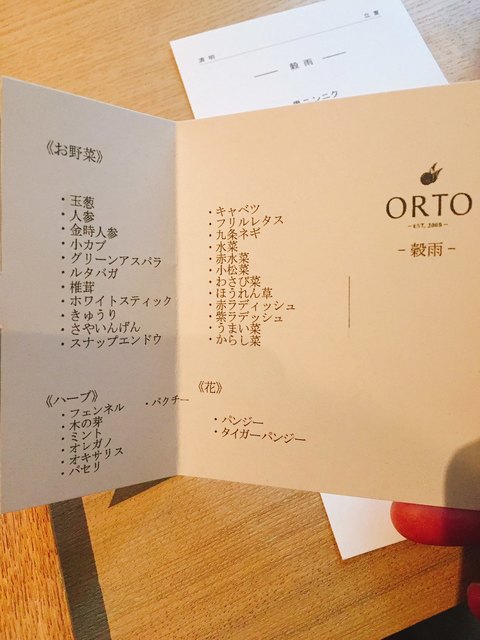 清明
立夏
穀雨
黒ニンニク
《お野菜》
・玉葱
・人参
・金時人参
・小カブ
・グリーンアスパラ
・ルタバガ
・椎茸
・ホワイトスティック
・きゅうり
・さやいんげん
・スナップエンドウ
・キャベツ
・フリルレタス
・九条ネギ
・水菜
・赤水菜
・小松菜
・わさび菜
・ほうれん草
・赤ラディッシュ
・紫ラデッシュ
・うまい菜
・からし菜
《ハーブ》
・フェンネル
・木の芽
・ミント
・オレガノ
・オキサリス
・パセリ
・パクチー
《花》
・パンジー
・タイガーパンジー
ORTO
-EST. 2009-
- 穀雨 -